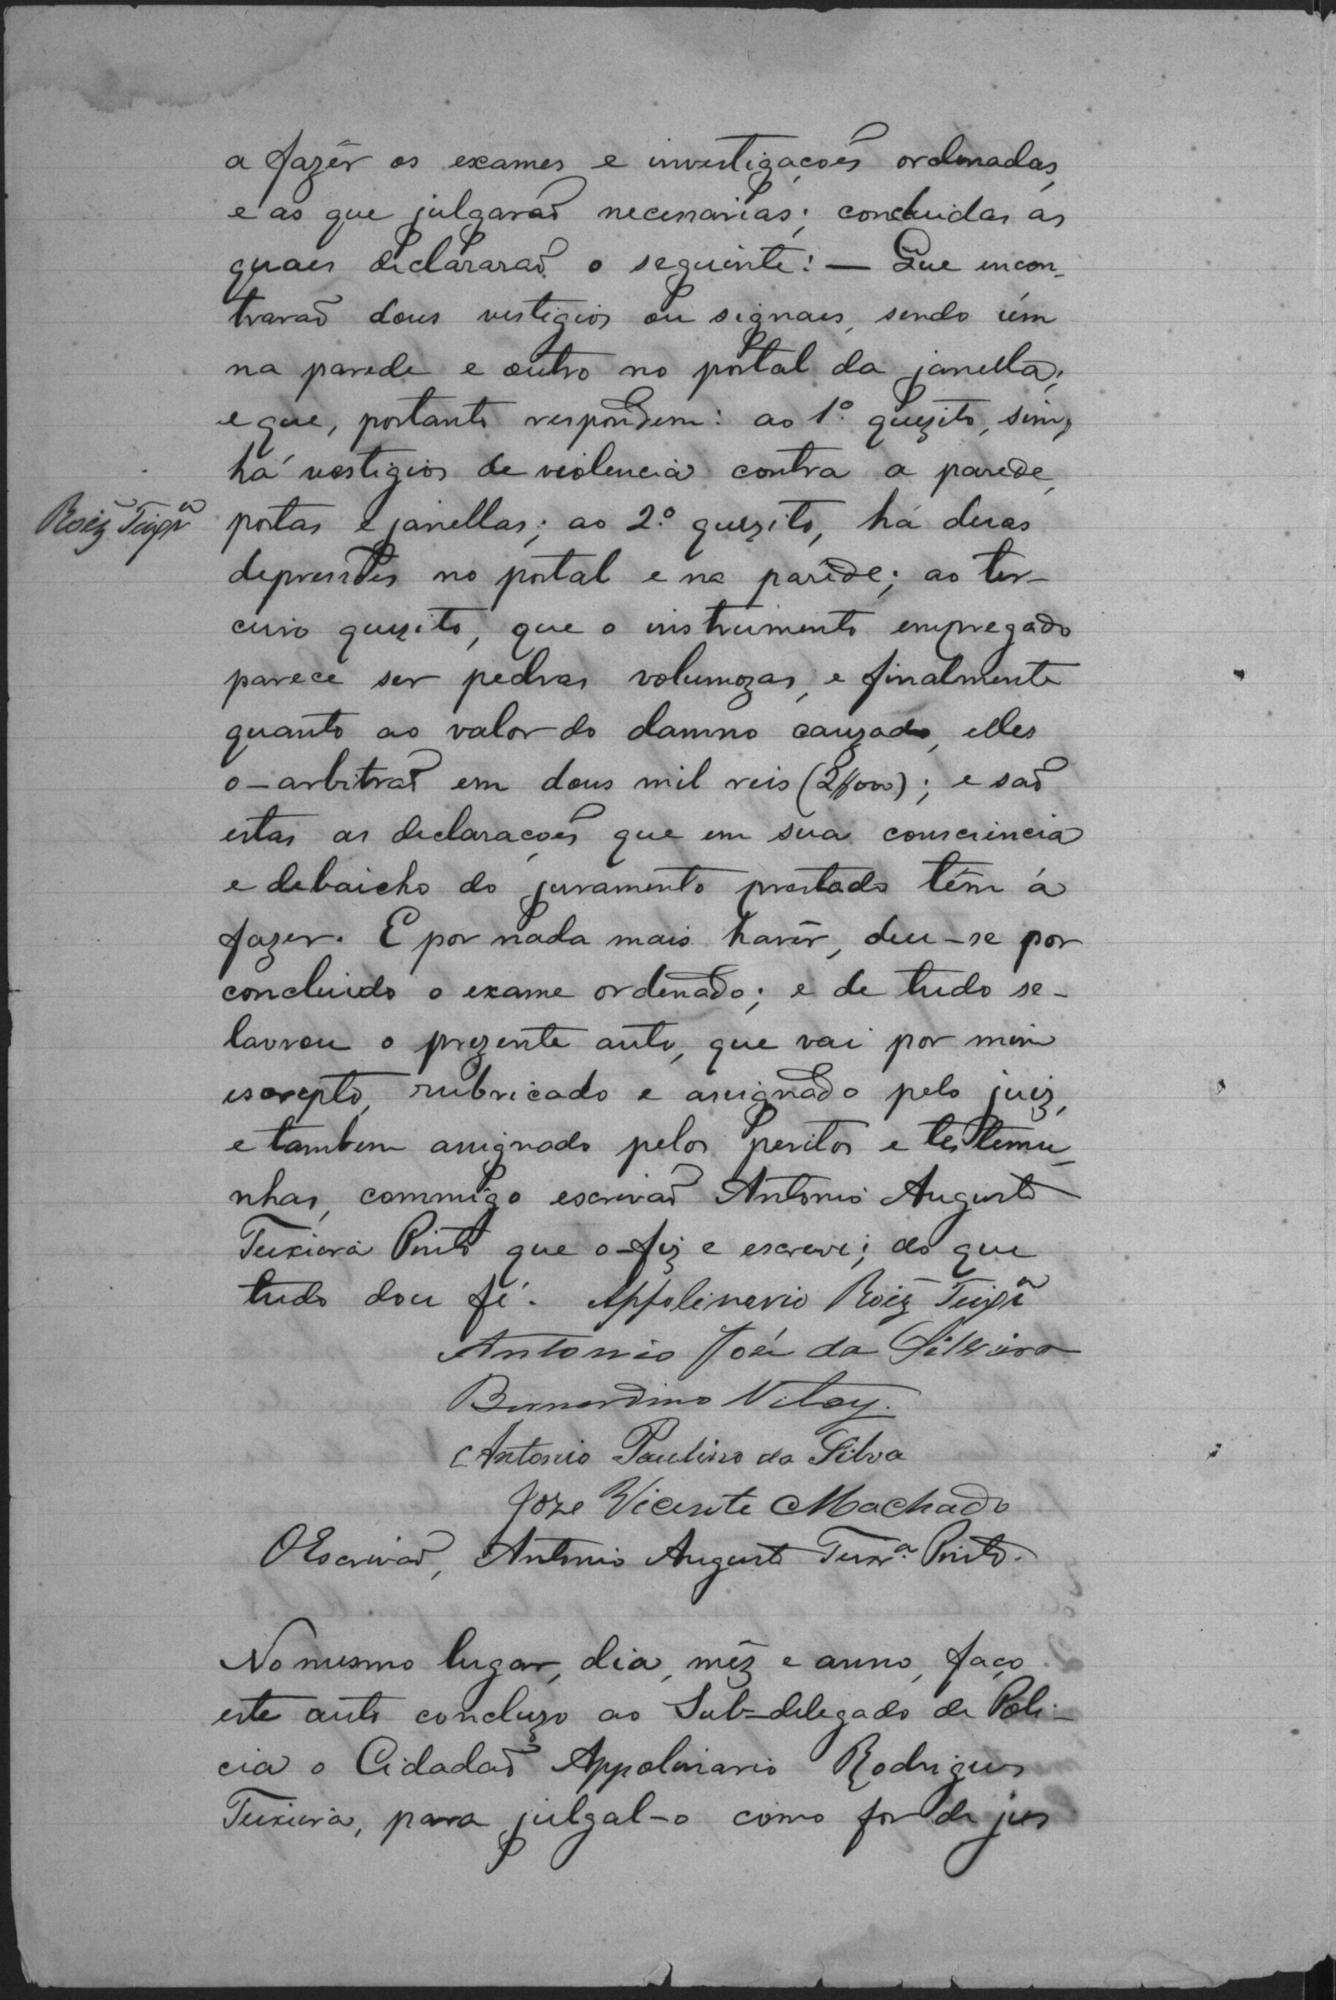 a fazêr os exames e investigações ordenadas,
e as que julgaraõ necessarias; concluidas as
quaes declararaõ o seguinte: — Que encon-
traraõ dous vestigios ou signaes, sendo um
na parede e outro no portal da janella;
e que, portanto respondem: ao 1º quezito, sim,
há vestigios de violencia contra a parede,
Roiz Teixrª
portas e janellas; ao 2º quezito, há duas
depressões no portal e na parêde; ao ter-
ceiro quezito, que o instrumento empregado
parece ser pedras volumozas, e finalmente
quanto ao valor do damno cauzado, elles
o-arbitraõ em dous mil reis (2$000); e saõ
estas as declarações que em sua consciencia
e debaicho do juramento prestado têm á
fazer. E por nada mais havêr, deu-se por
concluido o exame ordenado; e de tudo se-
lavrou o prezente auto, que vai por mim
escrepto, rubricado e assignado pelo juiz,
e tambem assignado pelos peritos e testemu-
nhas, commigo escrivaõ Antonio Augusto
Teixeira Pinto que o-fiz e escrevi; do que
tudo dou fé. Appolinario Roiz Teixrª
Antonio José da Silveira
Bernardino Vilay.
Antonio Paulino da Silva
Joze Vicente Machado
O Escrivaõ, Antonio Augusto Teixrª Pinto.
No mesmo lugar, dia, mêz e anno, faço
este auto concluzo ao Sub-delegado de Poli-
cia o Cidadaõ Appolinario Rodrigues
Teixeira, para julgal-o como for de jus